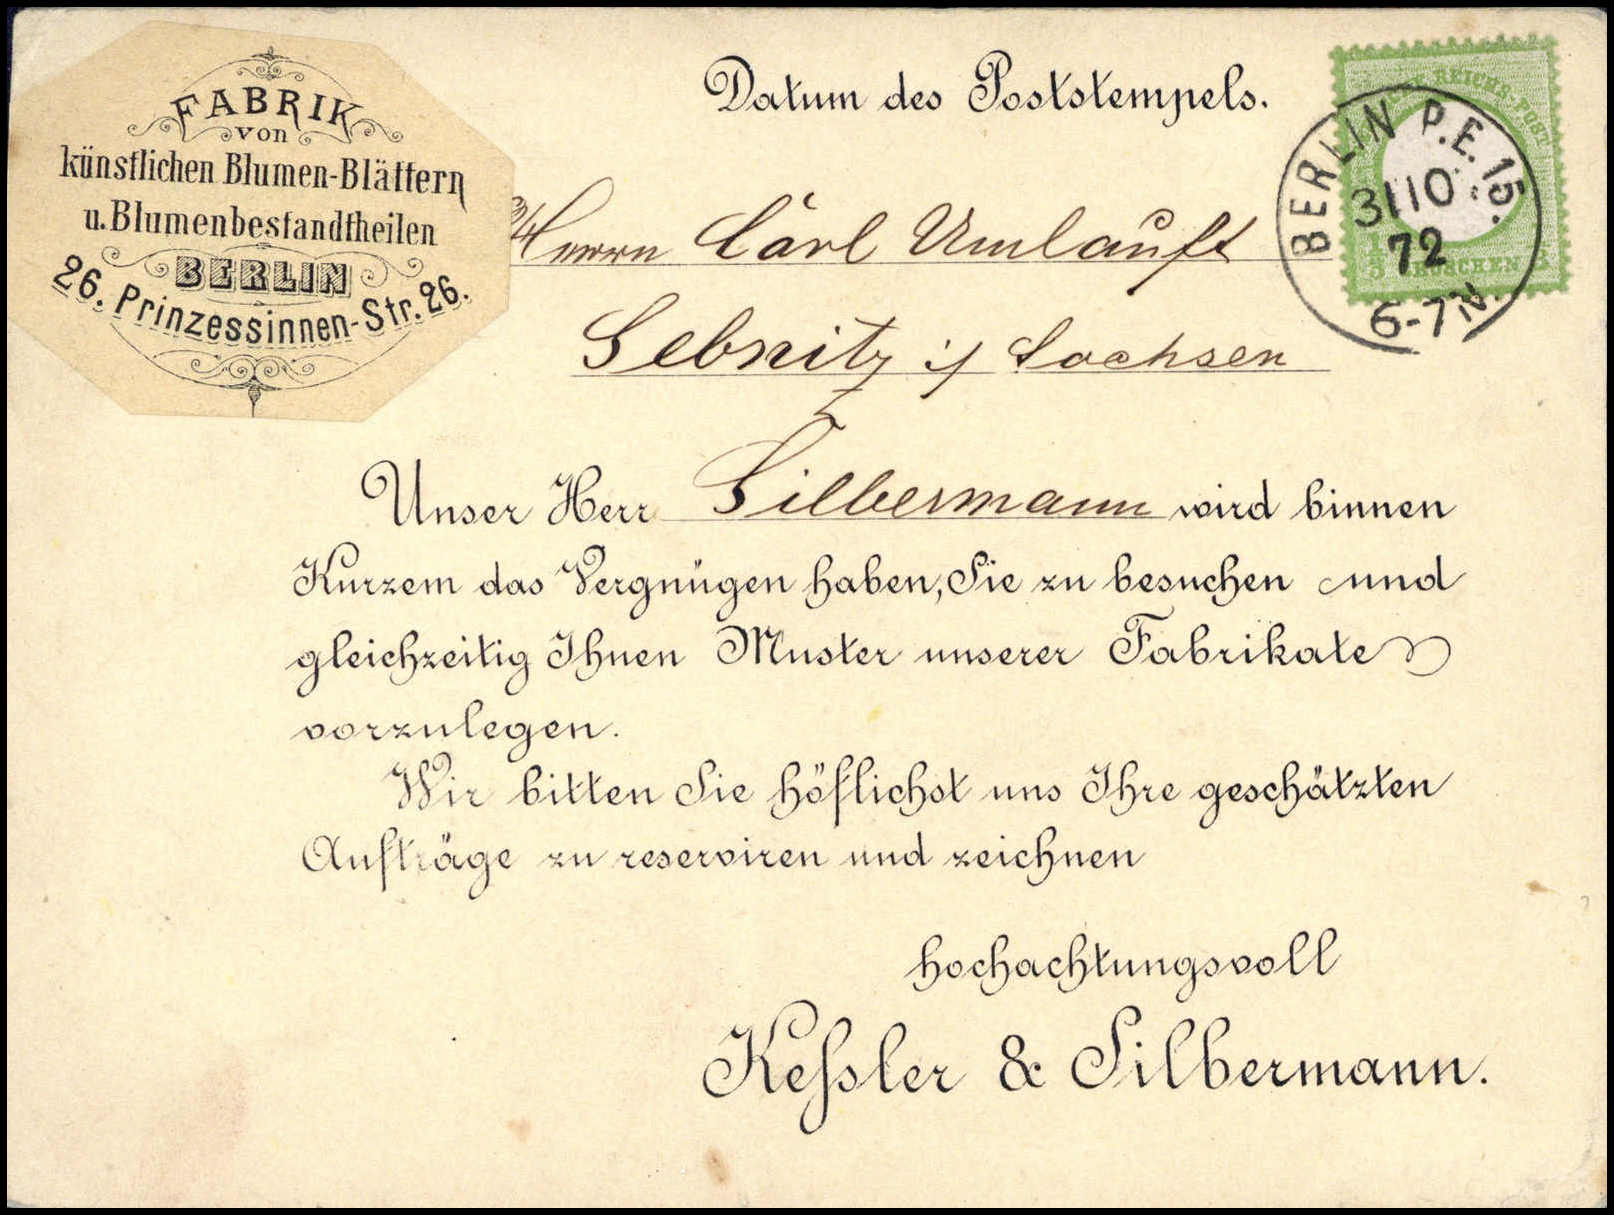 FABRIK
von
künstlichen Blumen-Blättern
u. Blumenbestandtheilen
BERLIN
26. Prinzessinnen-Str. 26.
Datum des Poststempels.
REICHS-POST
GROSCHEN
BERLIN P.E. 15.
31 10
72
6-7 N.
Herrn Carl Umlauft
Sebnitz i/ Sachsen
Unser Herr Silbermann wird binnen
Kurzem das Vergnügen haben, Sie zu besuchen und
gleichzeitig Ihnen Muster unserer Fabrikate
vorzulegen.
Wir bitten Sie höflichst uns Ihre geschätzten
Aufträge zu reserviren und zeichnen
hochachtungsvoll
Keſsler & Silbermann.